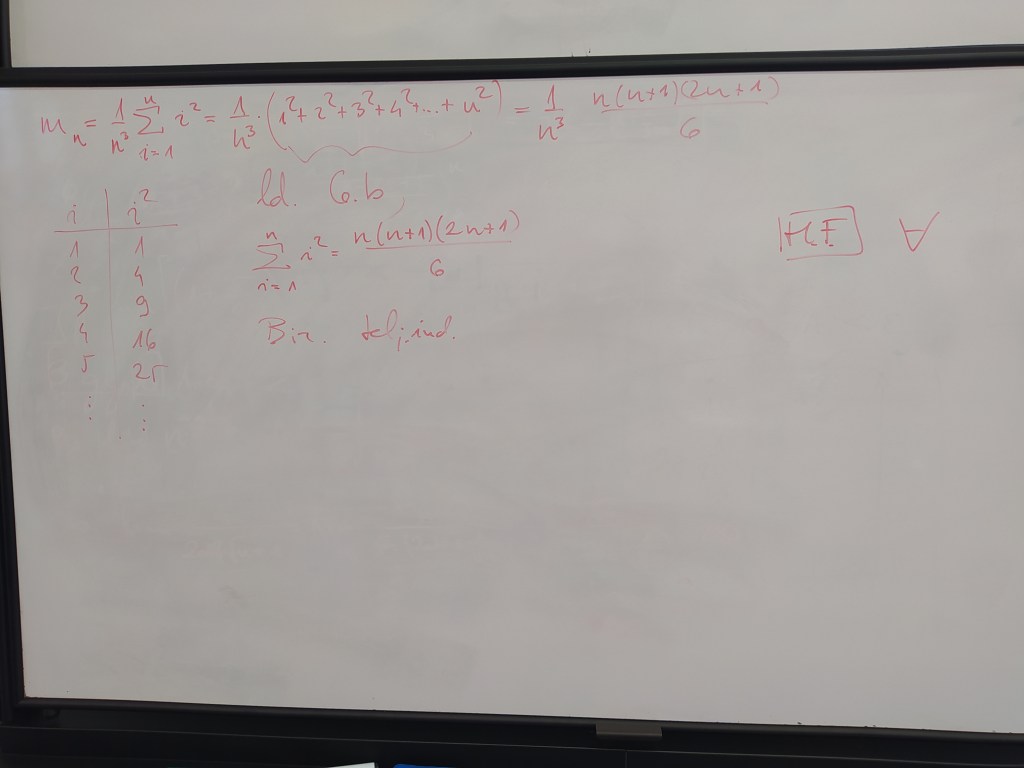 m_n = 1/n³ Σ_{i=1}^{n} i² = 1/n³ · (1²+2²+3²+4²+...+n²) = 1/n³ n(n+1)(2n+1)/6
i | i²
1 | 1
2 | 4
3 | 9
4 | 16
5 | 25
⋮ | ⋮
ld. 6.b
Σ_{i=1}^{n} i² = n(n+1)(2n+1)/6
Biz. telj. ind.
HF ∀